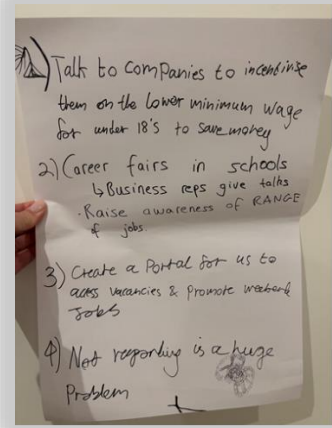 1) Talk to Companies to incentivise
them on the lower minimum wage
for under 18's to save money
2) Career fairs in schools
↳ Business reps give talks
· Raise awareness of RANGE
of jobs
3) Create a Portal for us to
access vacancies & promote weekend
Jobs
4) Not responding is a huge
Problem